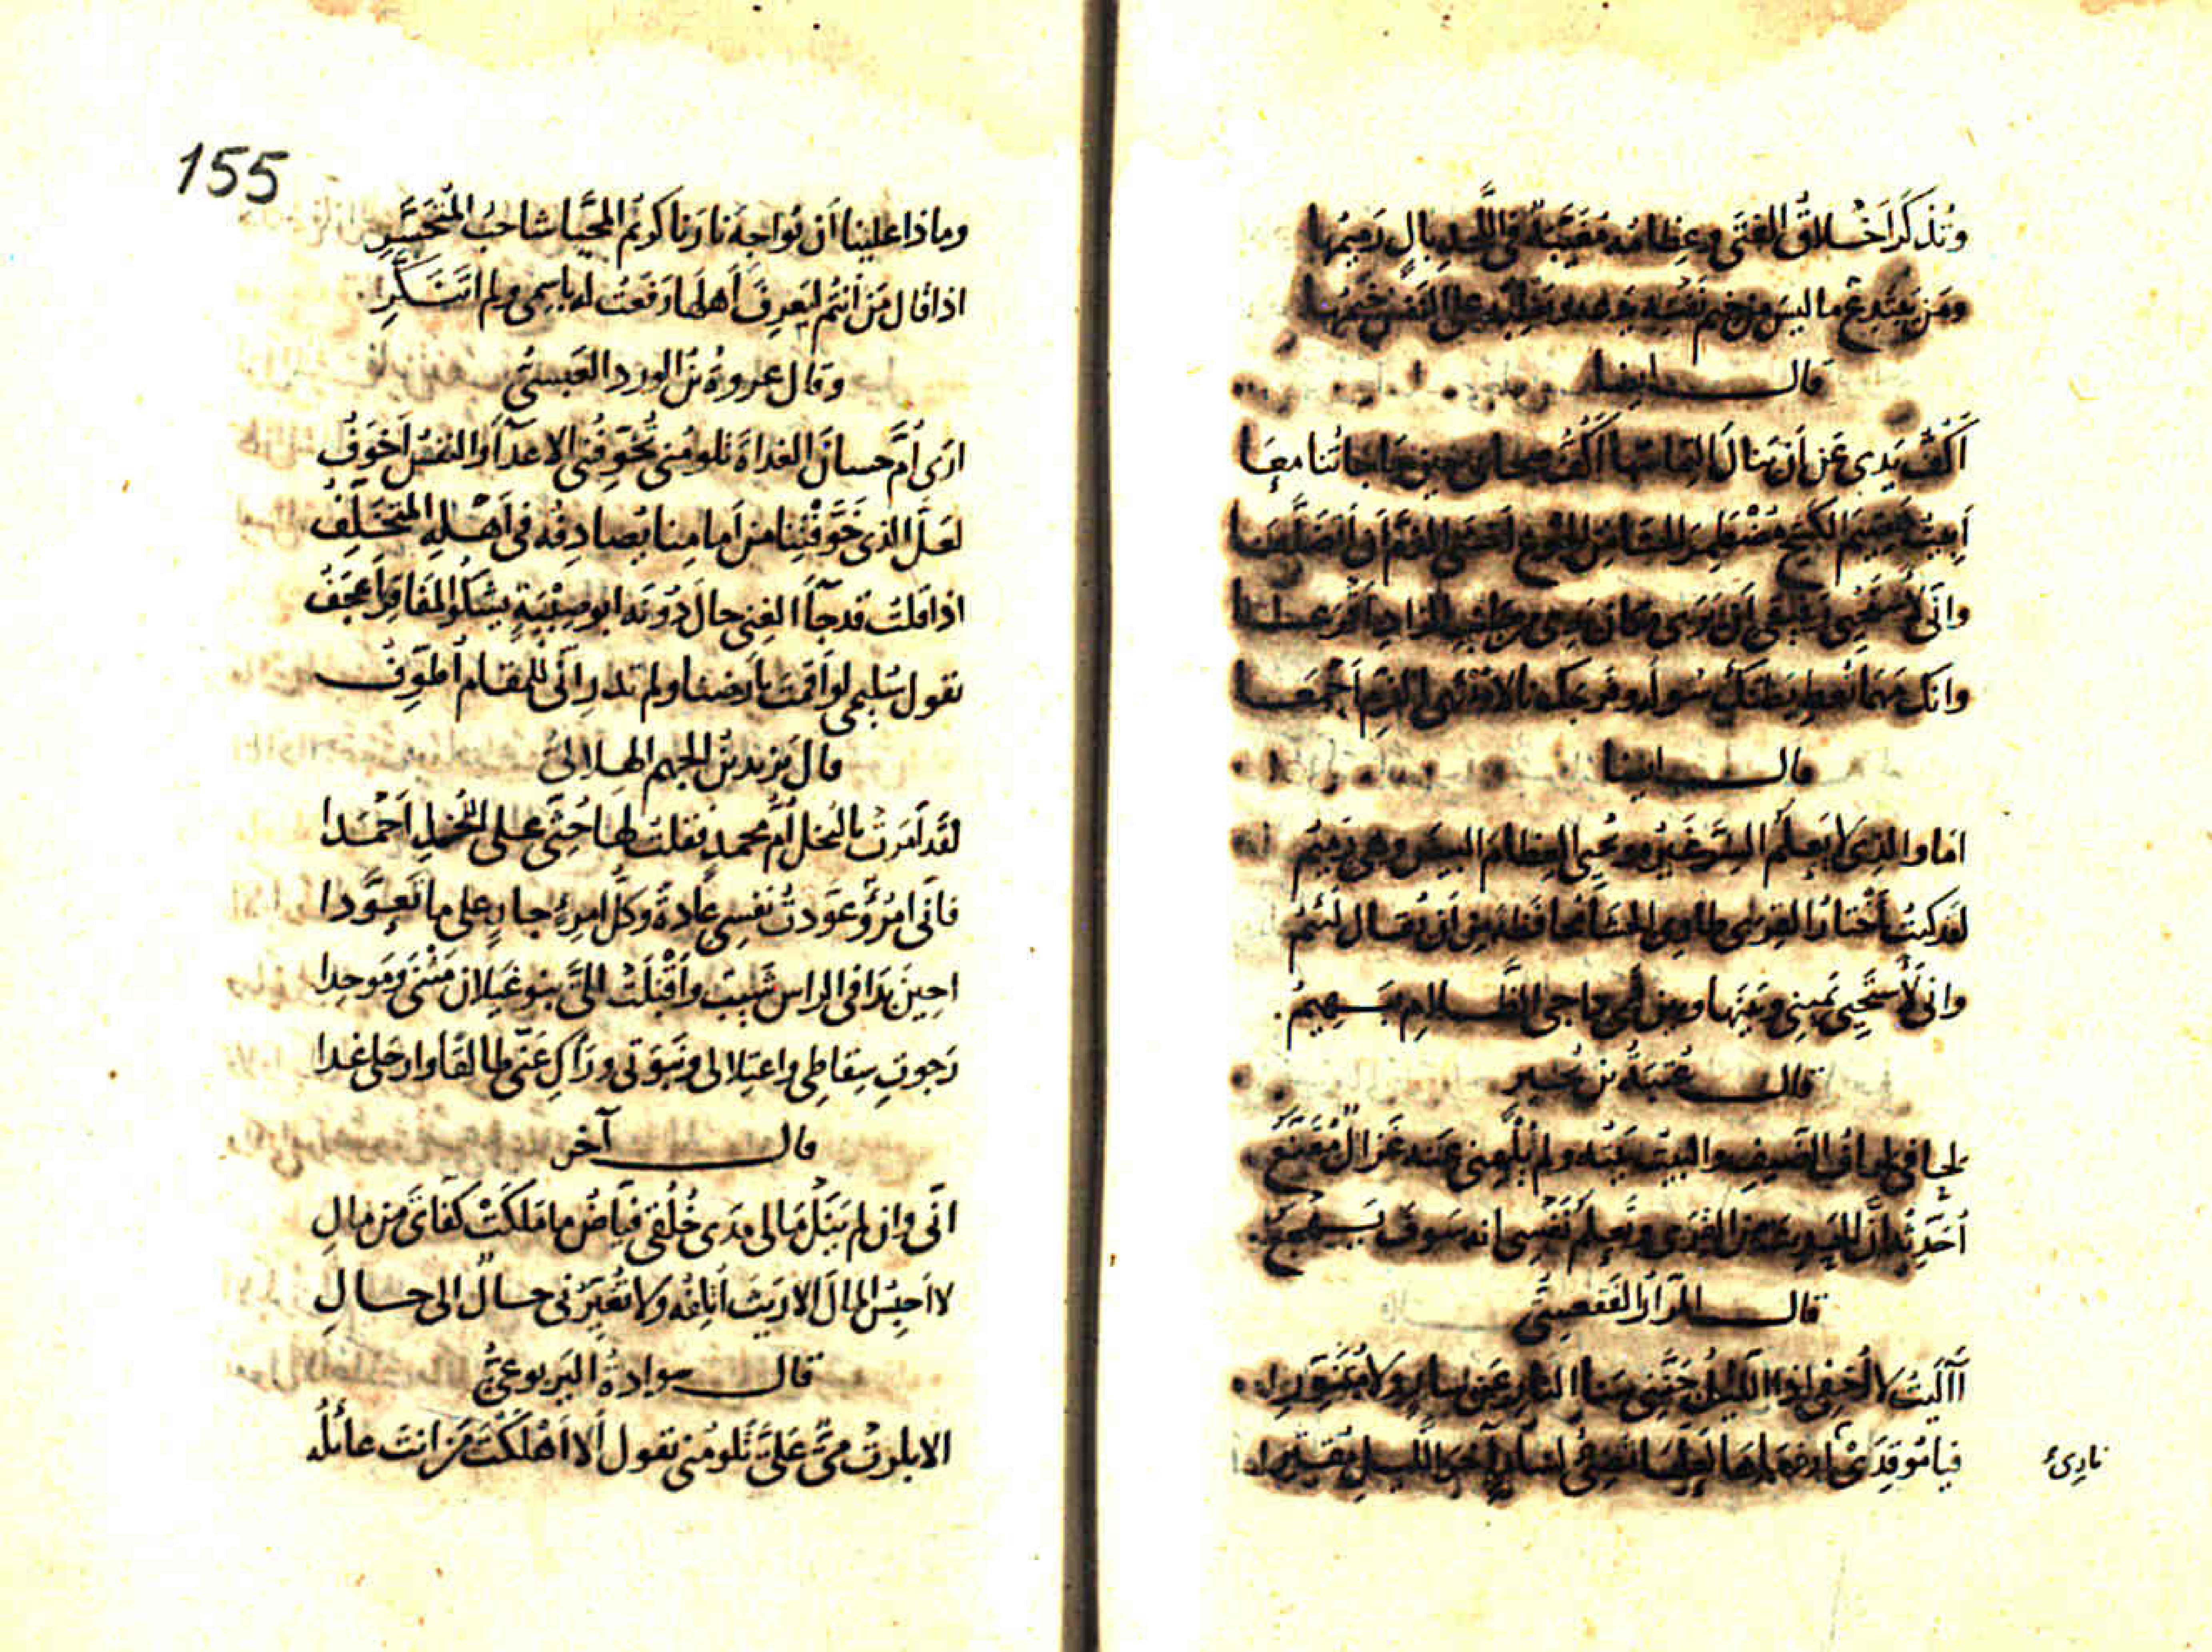 وتُذكَرُ أَخلاقُ الفَتَى وعِظامُه مُغَيَّبَةٌ في اللَّحدِ بالٍ رَمِيمُها
ومَن يَبتَدِع ما ليسَ من خِيمِ نَفسِه يَدَعه ويَغلِبه على النَفسِ خِيمُها
قال ايضا
أَكُفُّ يَدِي عَن أَن يَنالَ التماسُها أَكُفَّ صحابي حينَ حاجاتُنا معَا
أَبِيتُ هَضِيمَ الكَشحِ مُضطَمِر الحَشا مِن الجُوعِ أَخشَى الذَمَّ أَن أَتَضَلَّعَا
وانّي لَأَستَحيِي رَفيقي أَن يَرَى مكانَ يَدِي مِن جانِبِ الزادِ أَقرَعَا
وانك مَهما تُعطِ بَطنَكَ سُؤلَه وفَرجَك نالا مُنتَهى الذَمِّ أَجمَعَا
قال ايضا
اما والذِي لا يَعلَمُ السِّرَّ غَيرُه ويُحيِي العِظامَ البِيضَ وهي رَمِيمُ
لقد كنتُ أَختارُ القِرَى طاوِيَ الحَشا مُحافظةً مِن أَن يُقال لَئيمُ
وانّي لَأَستَحيِي يَمِيني وبَينَها وبين فَمِي داجي الظَّلامِ بَهِيمُ
قال عُتبَةُ بن بُجَيرٍ
لحافي لحافُ الضَيفِ والبيتُ بَيتُه ولم يُلهِني عَنه غَزالٌ مُقَنَّعُ
أُحَدِّثُه انَّ الحَديثَ مِن القِرَى وتَعلَمُ نَفسِي انه سَوفَ يَهجَعُ
قال المرّارُ الفَقعَسِيُّ
آلَيتُ لا أُخفِي اذا الليلُ جَنَّني سنا النارِ عن سارٍ ولا مُتَنَوِّرِ
فيا مُوقِدَي نارِي ارفعاها لَعَلَّها تُضِيءُ لسارٍ آخِرَ اللَّيلِ مُقتِرِ
نارِي
155
وماذا علينا أن يُواجِهَ نارَنا كَرِيمُ المُحَيَّا شاحِبُ المُتَحَسَّرِ
اذا قال مَن أَنتُم ليَعرِفَ أَهلَها رَفَعتُ له باسمِي ولم اتَنَكَّرِ
وقال عروةُ بنُ الورد العَبسيُّ
ارَى أُمَّ حسانَ الغداةَ تلومُني تُخَوِّفُني الاعداءَ والنفسُ أَخوَفُ
لعلَّ الذي خَوَّفتِنا مِن أَمامِنا يُصادِفُه في أَهلِهِ المُتَخَلِّف
اذا قلتُ قد جاءَ الغِنى حالَ دُونَه ابو صِبيَةٍ يشكو المَفاقِرَ أَعجَفُ
تقول سُليمى لو أَقمتَ بأرضنا ولم تَدرِ أَنّي للمُقام أُطَوِّفُ
قال يَزيدُ بنُ الجهم الهلاليّ
لقد أَمَرَت بالبُخلِ أُمُّ محمدٍ فقلتُ لها حُثِّي على البُخلِ أَحمَدا
فانّي امرُؤٌ عَوَّدتُ نفسِي عادةً وكلُّ امرِئٍ جارٍ على ما تَعَوَّدا
احِينَ بَدا في الراسِ شَيبٌ وأَقبَلَت اليَّ بنو غَيلانَ مَثنَى ومَوحِدا
رَجوتِ سِقاطي واعتِلالي ونَبوَتي وراكِ عَنّي طالقًا وارحَلي غدا
قال آخر
انّي وان لم يَنَل مالي مَدَى خُلُقي فيّاضُ ما مَلَكَت كفّايَ من مالِ
لا احبِسُ المالَ الا رَيثَ أُتلِفُه ولا تُغيِّرُني حالٌ الى حالِ
قال سوادةُ اليَربوعيّ
الا بكرَت مَيٌّ عَلَيَّ تَلُومُني تقول ألا أَهلَكتَ مَن انتَ عائلُه